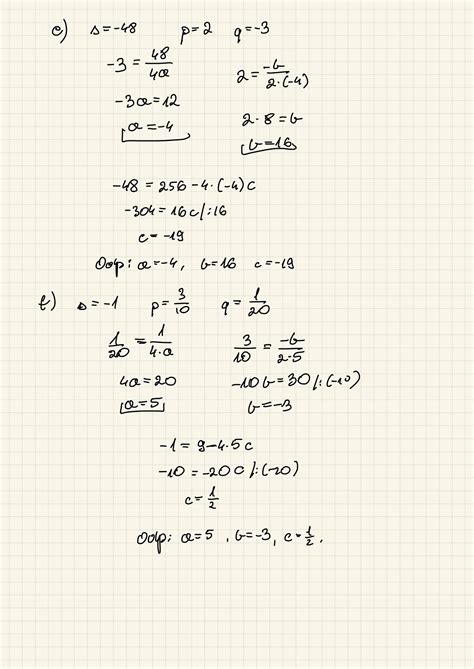 e) s=-48 p=2 q=-3
-3=48/4a 2=-b/2·(-4)
-3a=12 2·8=b
a=-4 b=16
-48=256-4·(-4)c
-304=16c/:16
c=-19
Odp: a=-4, b=16 c=-19
f) s=-1 p=3/10 q=1/20
1/20=1/4·a 3/10=-b/2·5
4a=20 -10b=30/:(-10)
a=5 b=-3
-1=9-4·5c
-10=-20c/:(-20)
c=1/2
Odp: a=5, b=-3, c=1/2.